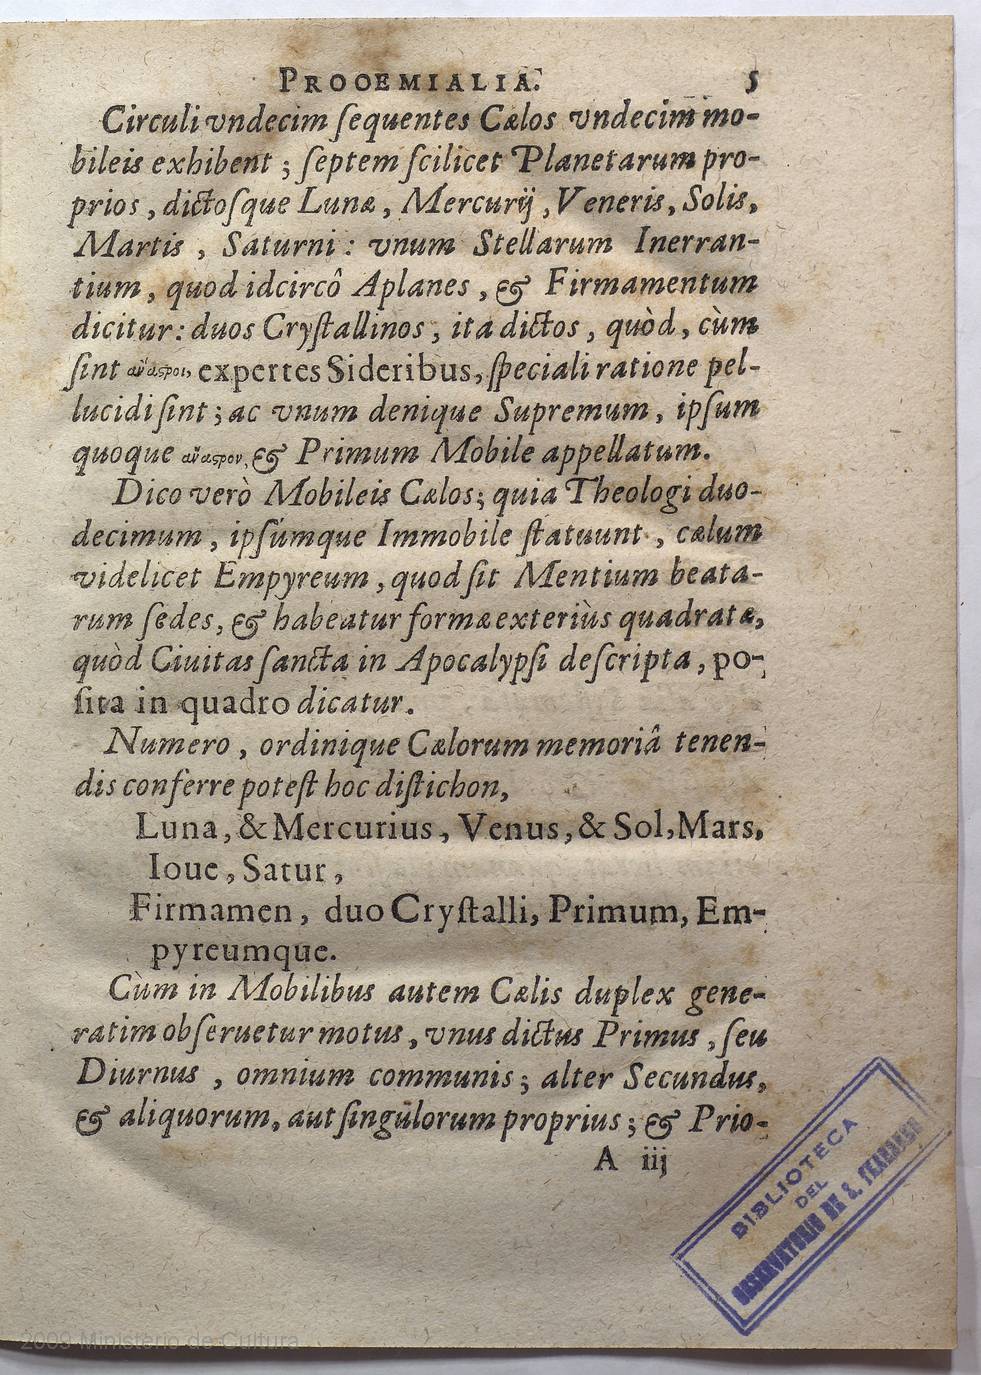 PROOEMIALIA. 5
Circuli vndecim ſequentes Cælos vndecim mo-
bileis exhibent ; ſeptem ſcilicet Planetarum pro-
prios , dictoſque Lunæ , Mercurij , Veneris, Solis,
Martis , Saturni : vnum Stellarum Inerran-
tium , quod idcircô Aplanes , & Firmamentum
dicitur : duos Cryſtallinos , ita dictos , quòd , cùm
ſint ἄναςροι, expertes Sideribus, ſpeciali ratione pel-
lucidi ſint ; ac vnum denique Supremum , ipſum
quoque ἄναςρον, & Primum Mobile appellatum.
Dico verò Mobileis Cælos; quia Theologi duo-
decimum , ipſúmque Immobile ſtatuunt , cælum
videlicet Empyreum , quod ſit Mentium beata-
rum ſedes, & habeatur formæ exteriùs quadratæ,
quòd Ciuitas ſancta in Apocalypſi deſcripta , po-
ſita in quadro dicatur.
Numero , ordinique Cælorum memoriâ tenen-
dis conferre poteſt hoc diſtichon,
Luna, & Mercurius, Venus, & Sol, Mars,
Ioue, Satur,
Firmamen, duo Cryſtalli, Primum, Em-
pyreumque.
Cùm in Mobilibus autem Cælis duplex gene-
ratim obſeruetur motus , vnus dictus Primus , ſeu
Diurnus , omnium communis ; alter Secundus,
& aliquorum, aut ſingulorum proprius ; & Prio-
A iij
BIBLIOTECA
DEL
OBSERVATORIO DE S. FERNANDO
2009 Ministerio de Cultura